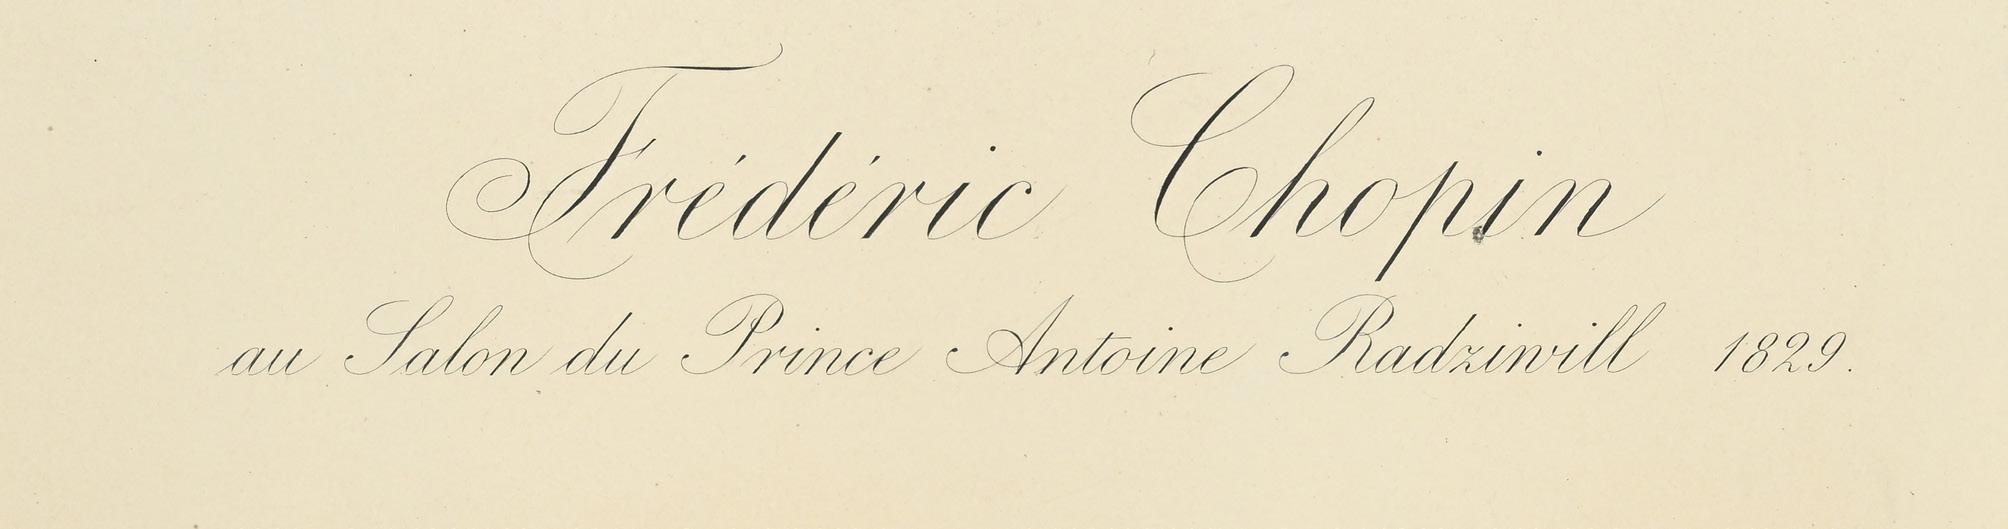 Frédéric Chopin
au Salon du Prince Antoine Radziwill 1829.